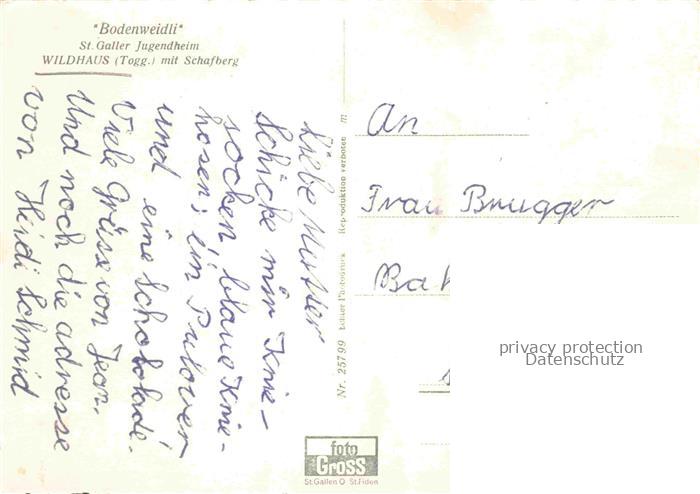 "Bodenweidli"
St. Galler Jugendheim
WILDHAUS (Togg.) mit Schafberg
Liebe Mutter
Schicke mir Knie-
socken, blaue Knie-
hosen; ein Pulover
und eine Schokolade.
Viele Grüsse von Jean.
Und noch die adresse
von Heidi Schmid
Nr. 25799 Echter Photodruck Reproduktion verboten m
An
Frau Brugger
Bah
privacy protection
Datenschutz
foto
Gross
St.Gallen O St.Fiden